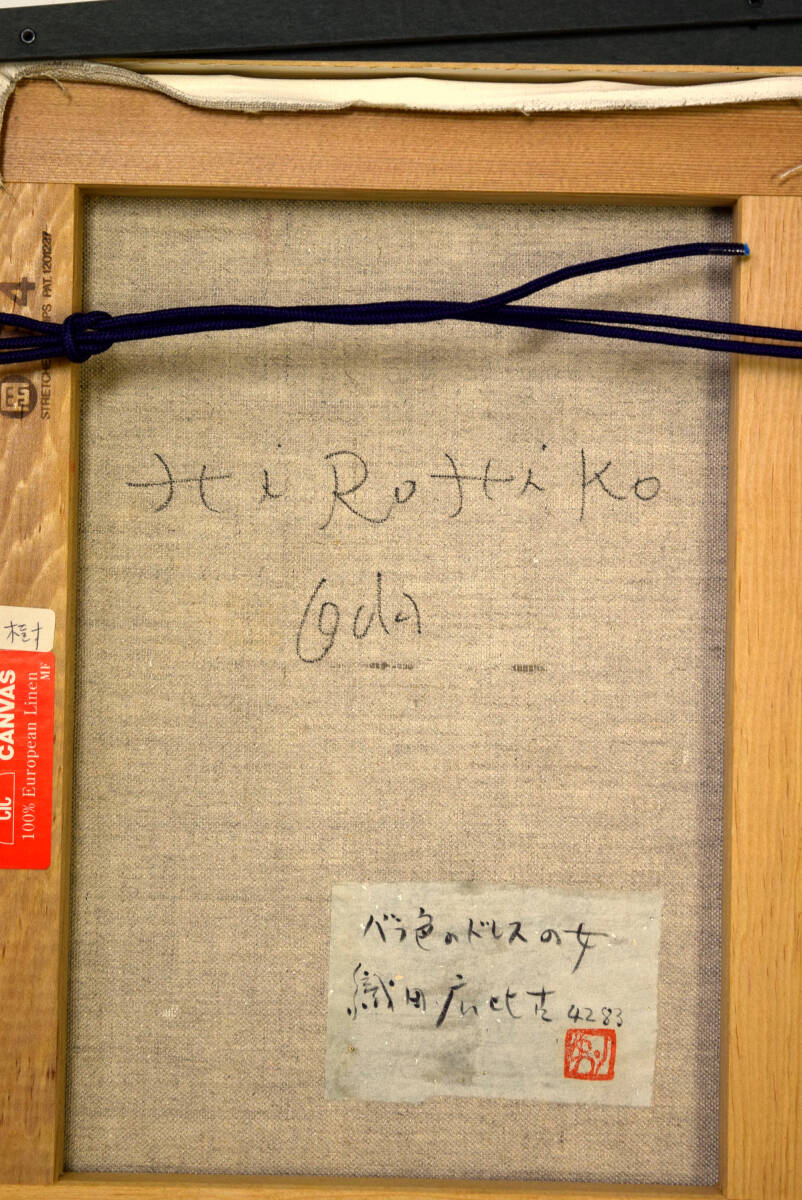 4
STRETCHE PS PAT. 1201227
HiRoHiKo
Oda
樹
CIC CANVAS
100% European Linen
MF
バラ色のドレスの女
織田広比古 4283